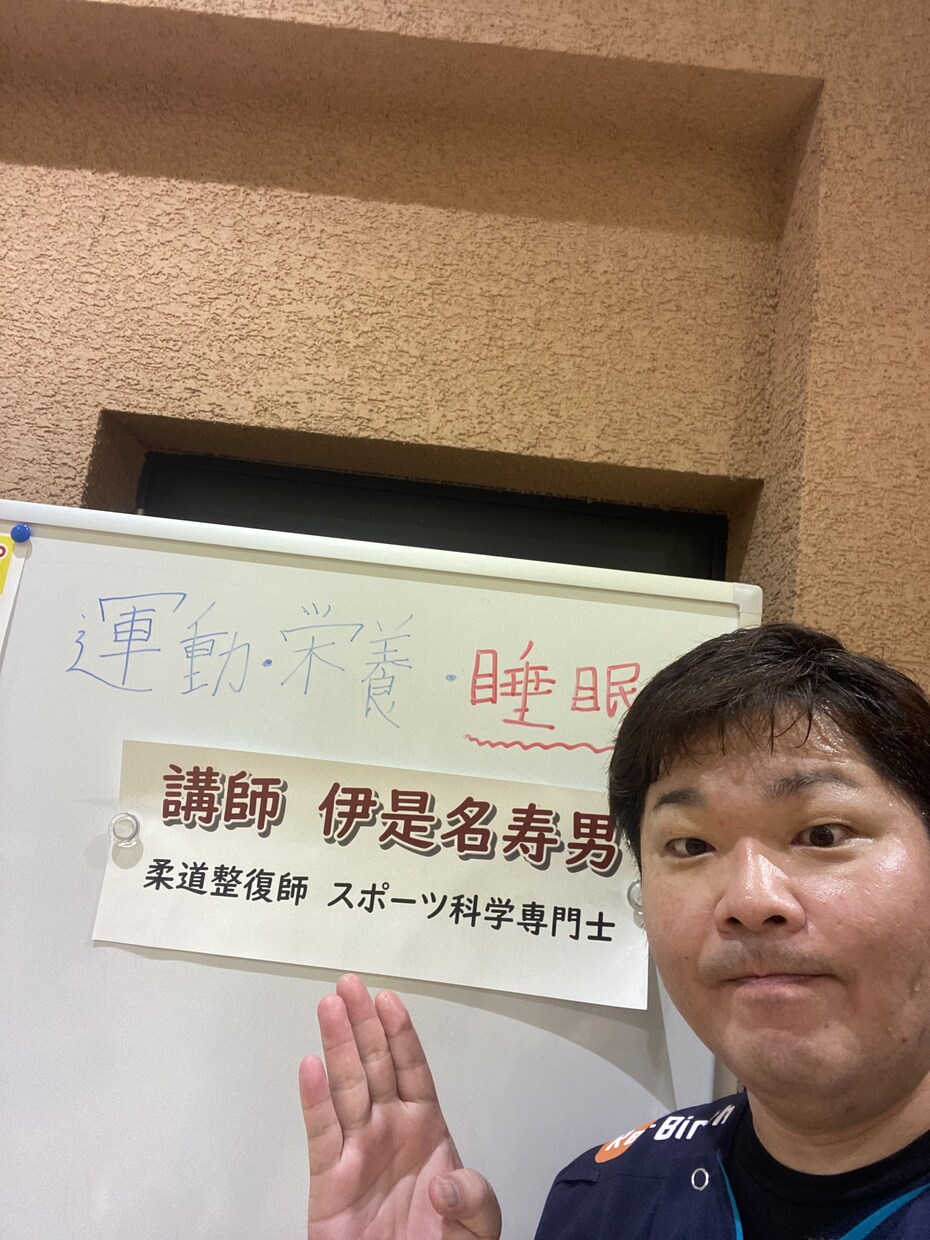 運動・栄養・睡眠
講師 伊是名寿男
柔道整復師 スポーツ科学専門士